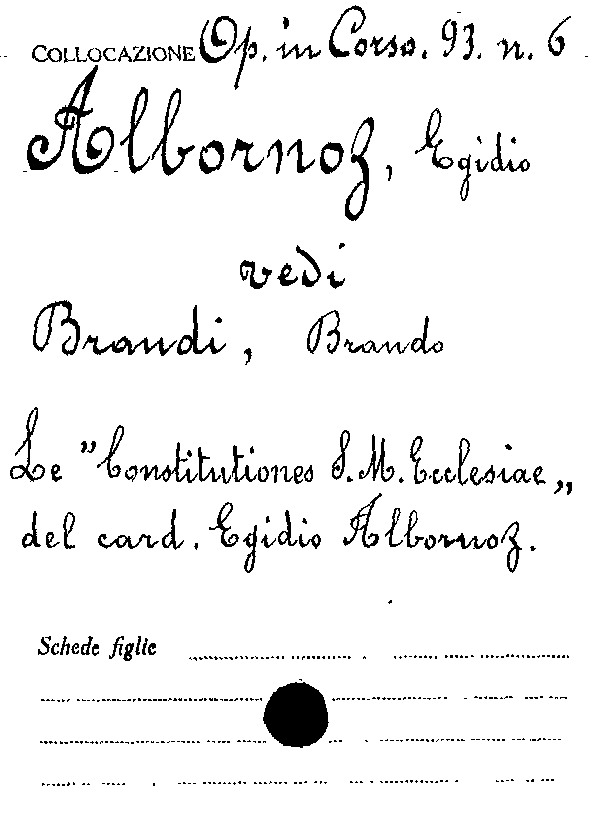 COLLOCAZIONE Op. in Corso. 93. n. 6
Albornoz, Egidio
vedi
Brandi, Brando
Le "Constitutiones S. M. Ecclesiae„
del card. Egidio Albornoz.
Schede figlie